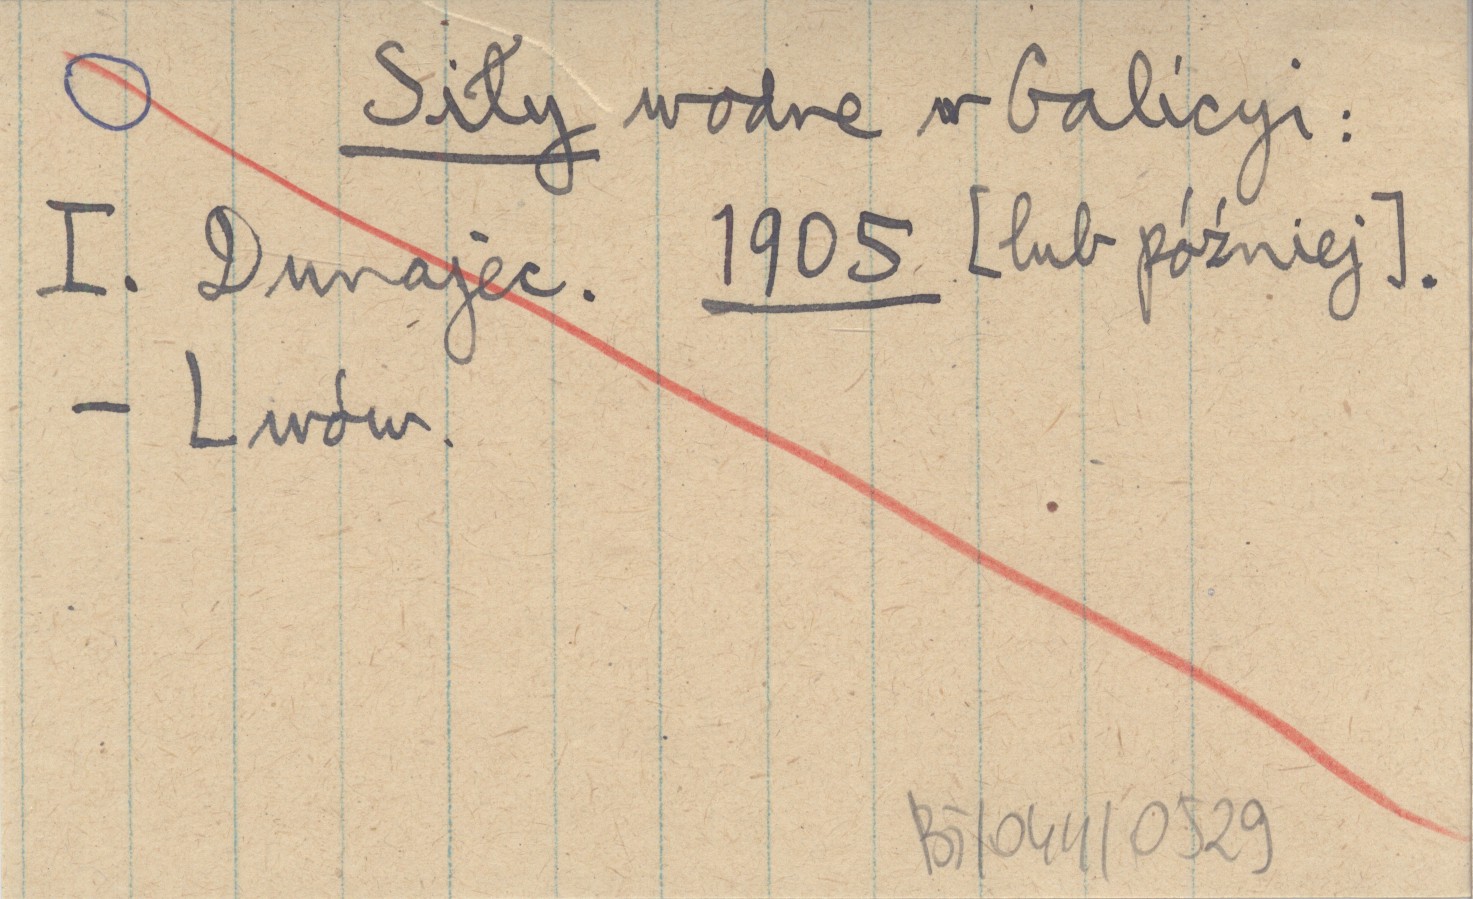 Siły wodne w Galicyi:
I. Dunajec. 1905 [lub później].
– Lwów.
BJ/044/0529